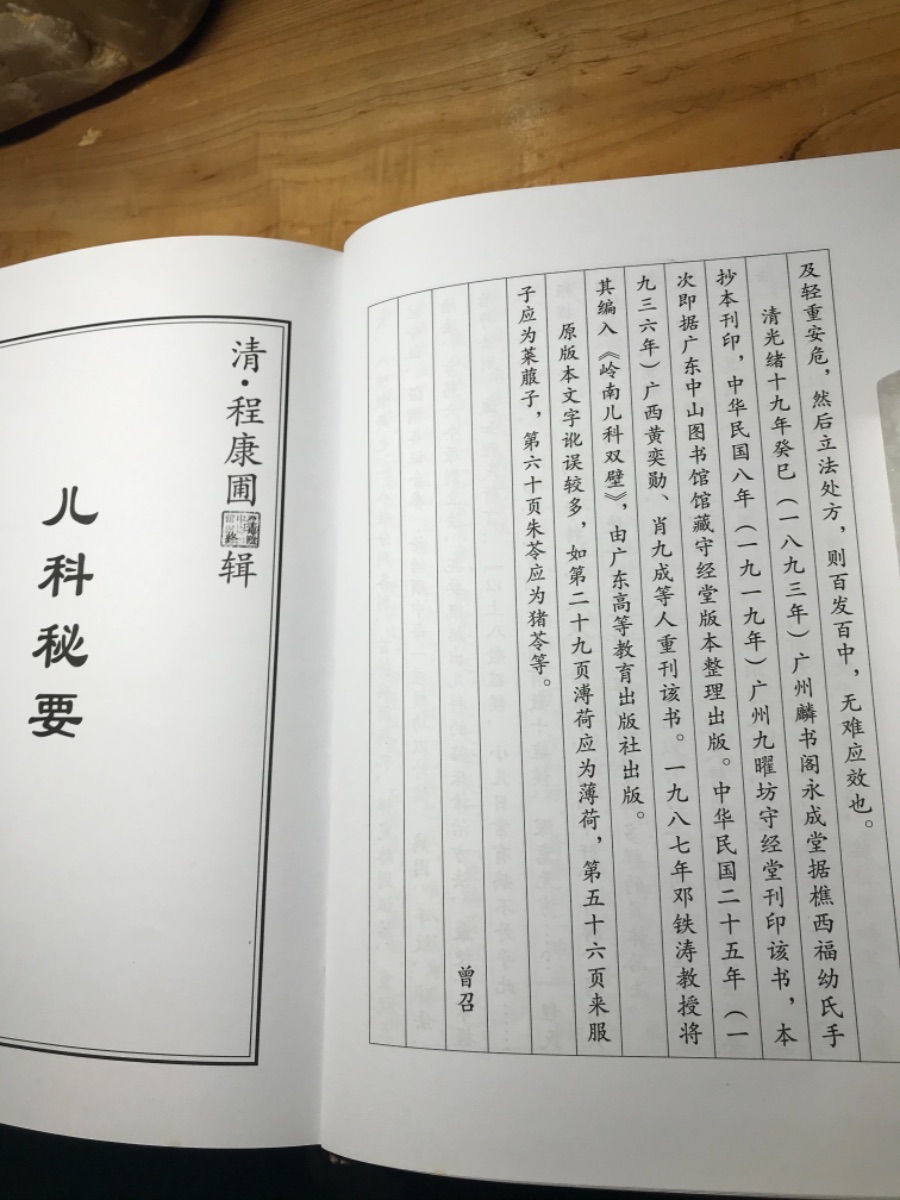 及轻重安危，然后立法处方，则百发百中，无难应效也。
清光绪十九年癸巳（一八九三年）广州麟书阁永成堂据樵西福幼氏手
抄本刊印，中华民国八年（一九一九年）广州九曜坊守经堂刊印该书，本
次即据广东中山图书馆馆藏守经堂版本整理出版。中华民国二十五年（一
九三六年）广西黄奕勋、肖九成等人重刊该书。一九八七年邓铁涛教授将
其编入《岭南儿科双璧》，由广东高等教育出版社出版。
原版本文字讹误较多，如第二十九页溥荷应为薄荷，第五十六页来服
子应为莱菔子，第六十页朱苓应为猪苓等。
曾召
清·程康圃辑
儿科秘要